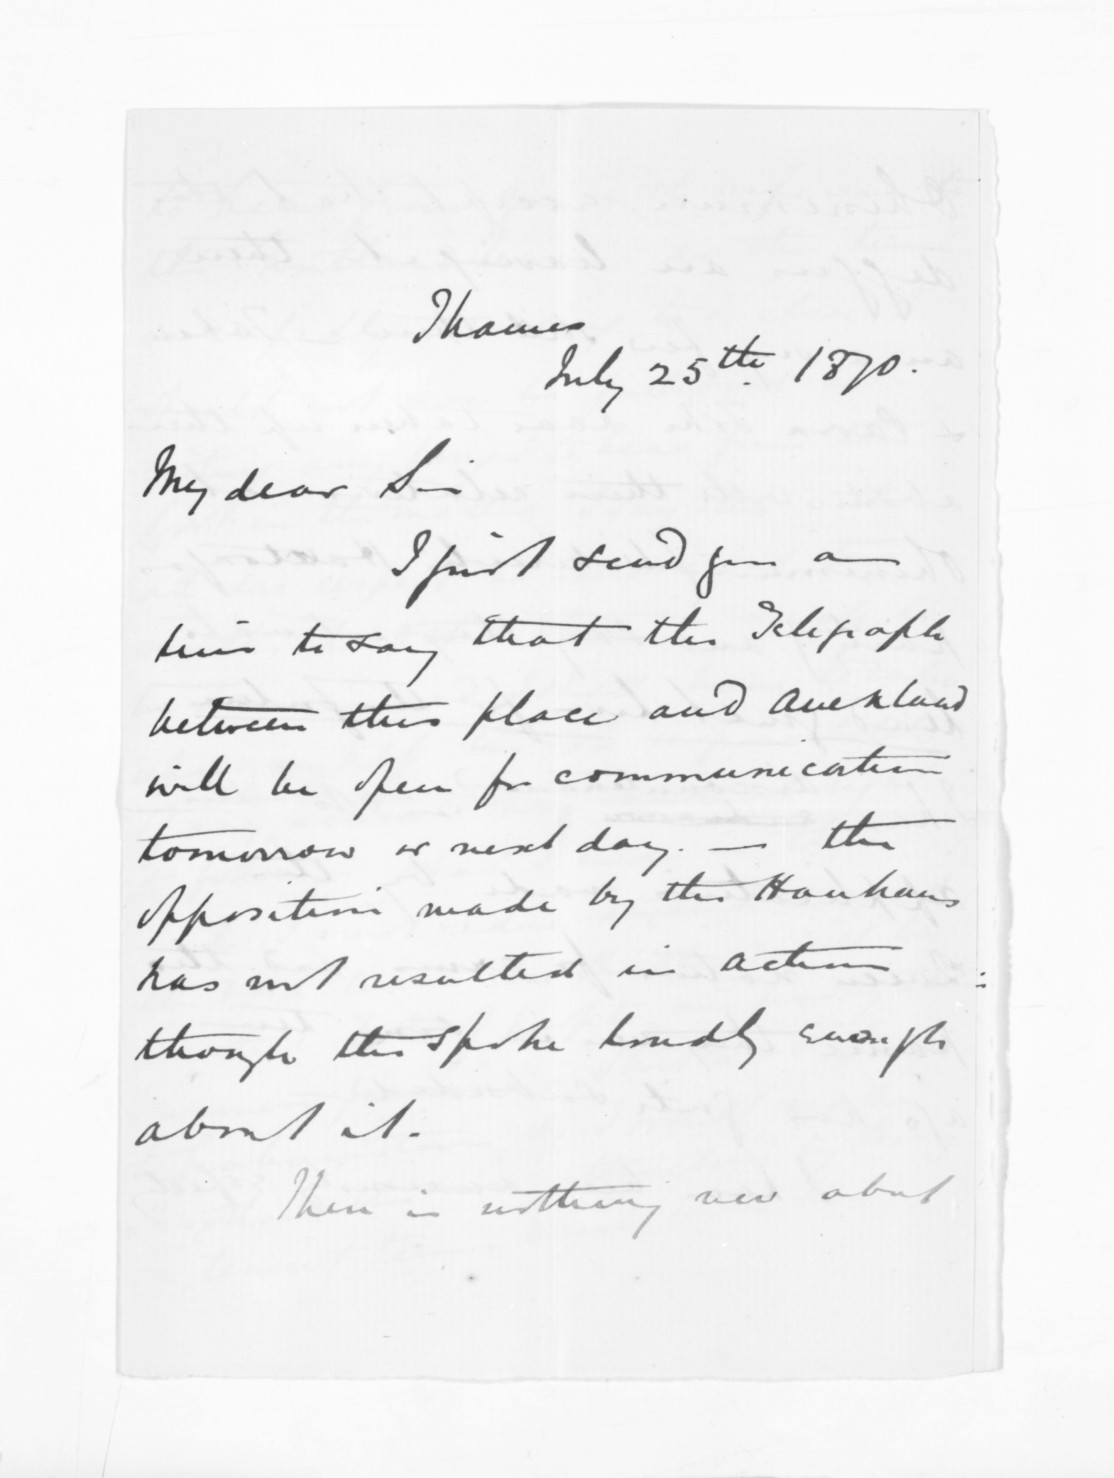 Thames
July 25th. 1870.
My dear Sir
I just send you a
line to say that the Telegraph
between this place and Auckland
will be open for communication
tomorrow or next day. — the
opposition made by the Hauhaus
has not resulted in action
though they spoke loudly enough
about it.
There is nothing new about